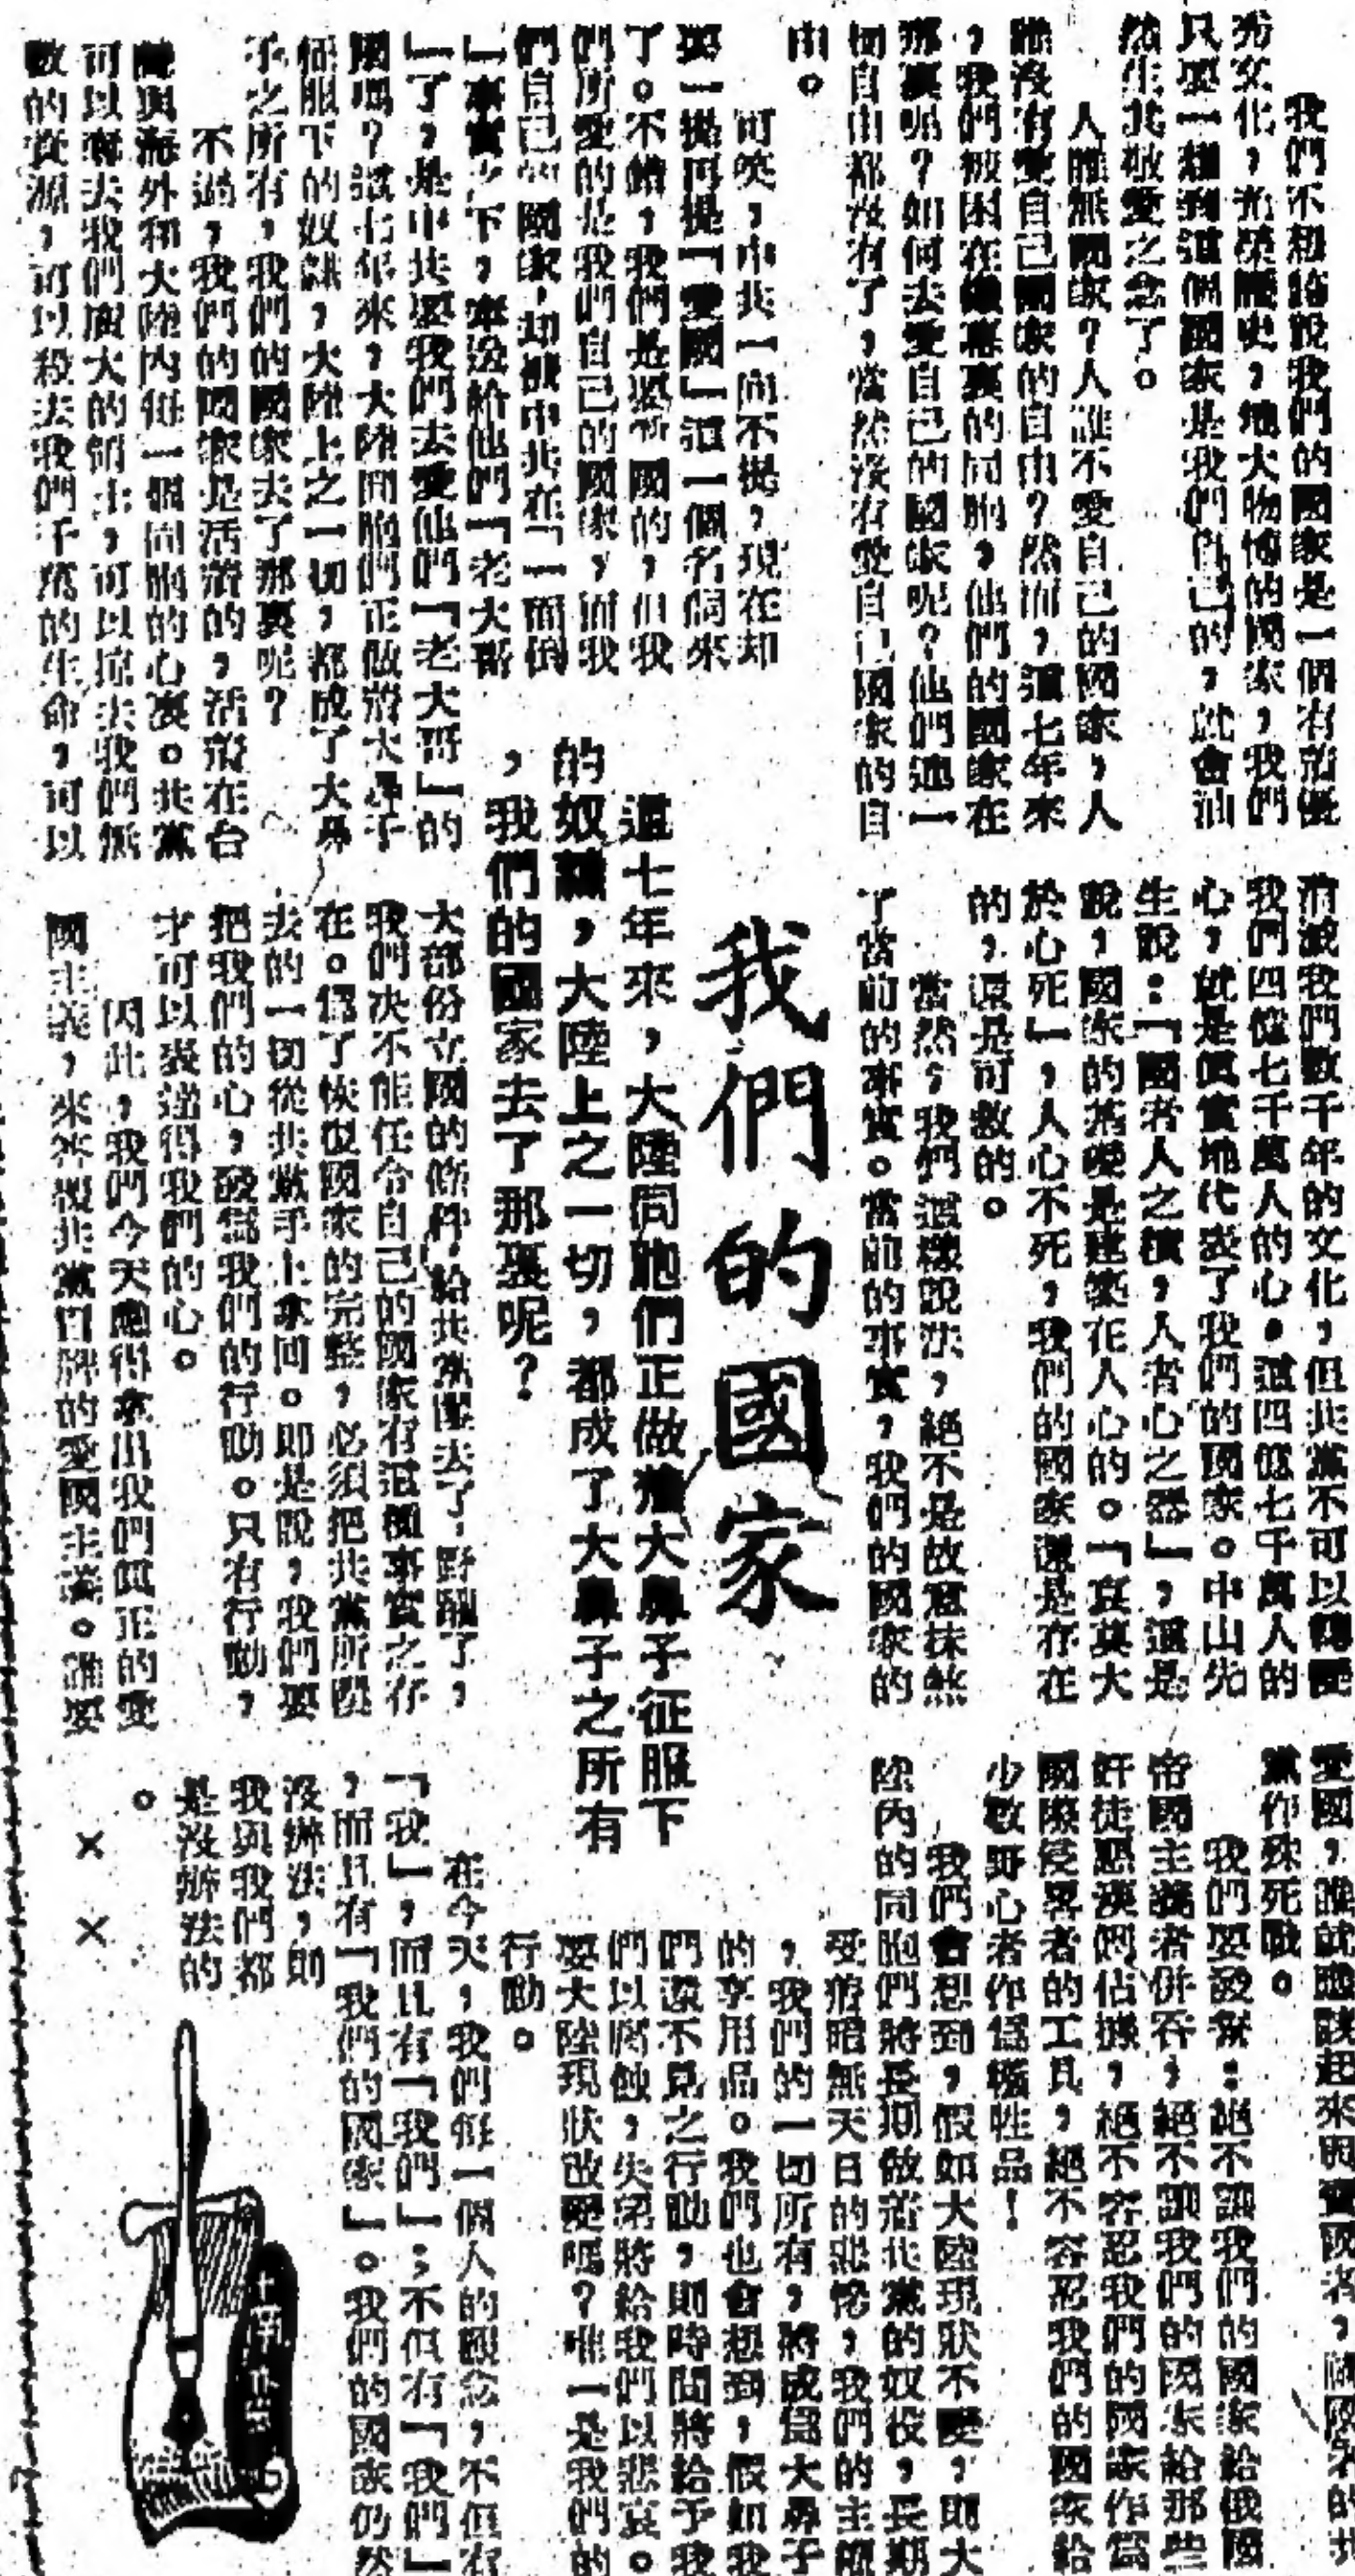 我們的國家
這七年來,大陸同胞們正做着大鼻子征服下
的奴隸,大陸上之一切,都成了大鼻子之所有
,我們的國家去了那裏呢?
我們不想諱說我們的國家是一個有着優
秀文化,光榮歷史,地大物博的國家,我們
只要一想到這個國家是我們自己的,就會油
然生其敬愛之念了。
人誰無國家?人誰不愛自己的國家,人
誰沒有愛自己國家的自由?然而,這七年來
,我們被困在鐵幕裏的同胞,他們的國家在
那裏呢?如何去愛自己的國家呢?他們連一
切自由都沒有了,當然沒有愛自己國家的自
由。
可笑,中共一向不提,現在却
要一提再提「愛國」這一個名詞來
了。不錯,我們是要愛國的,但我
們所愛的是我們自己的國家,而我
們自己的國家,却被中共在「一面倒
」事實之下,奉送給他們「老大哥
」了,是中共要我們去愛他們「老大哥」的
國嗎?這七年來,大陸同胞們正做着大鼻子
征服下的奴隸,大陸上之一切,都成了大鼻
子之所有,我們的國家去了那裏呢?
不過,我們的國家是活着的,活着在台
灣與海外和大陸內每一個同胞的心裏。共黨
可以奪去我們廣大的領土,可以掠去我們無
數的資源,可以殺去我們千萬的生命,可以
消滅我們數千年的文化,但共黨不可以轉變
我們四億七千萬人的心。這四億七千萬人的
心,就是真實地代表了我們的國家。中山先
生說:「國者人之積,人者心之器」,這是
說,國家的基礎是建築在人心的。「哀莫大
於心死」,人心不死,我們的國家還是存在
的,還是可救的。
當然,我們這樣說法,絕不是故意抹煞
了當前的事實。當前的事實,我們的國家的
大部份立國的條件,給共黨攫去了,毀滅了,
我們決不能任令自己的國家有這種事實之存
在。爲了恢復國家的完整,必須把共黨所攫
去的一切從共黨手上拿回。即是說,我們要
把我們的心,發爲我們的行動。只有行動,
才可以表達得我們的心。
因此,我們今天應得拿出我們真正的愛
國主義,來答覆共黨冒牌的愛國主義。誰要
愛國,誰就應該起來與賣國者,禍國者的共
黨作殊死戰。
我們要發誓:絕不讓我們的國家給俄國
帝國主義者併吞,絕不讓我們的國家給那些
奸徒惡漢們佔據,絕不容忍我們的國家作爲
國際侵畧者的工具,絕不容忍我們的國家給
少數野心者作爲犧牲品!
我們會想到,假如大陸現狀不變,則大
陸內的同胞們將長期做着共黨的奴役,長期
受着暗無天日的悲慘,我們的主權
,我們的一切所有,將成爲大鼻子
的享用品。我們也會想到,假如我
們還不見之行動,則時間將給予我
們以腐蝕,失望將給我們以悲哀。
要大陸現狀改變嗎?唯一是我們的
行動。
在今天,我們每一個人的觀念,不但有
「我」,而且有「我們」;不但有「我們」
,而且有「我們的國家」。我們的國家仍然
沒辦法,則
我與我們都
是沒辦法的
。
× ×